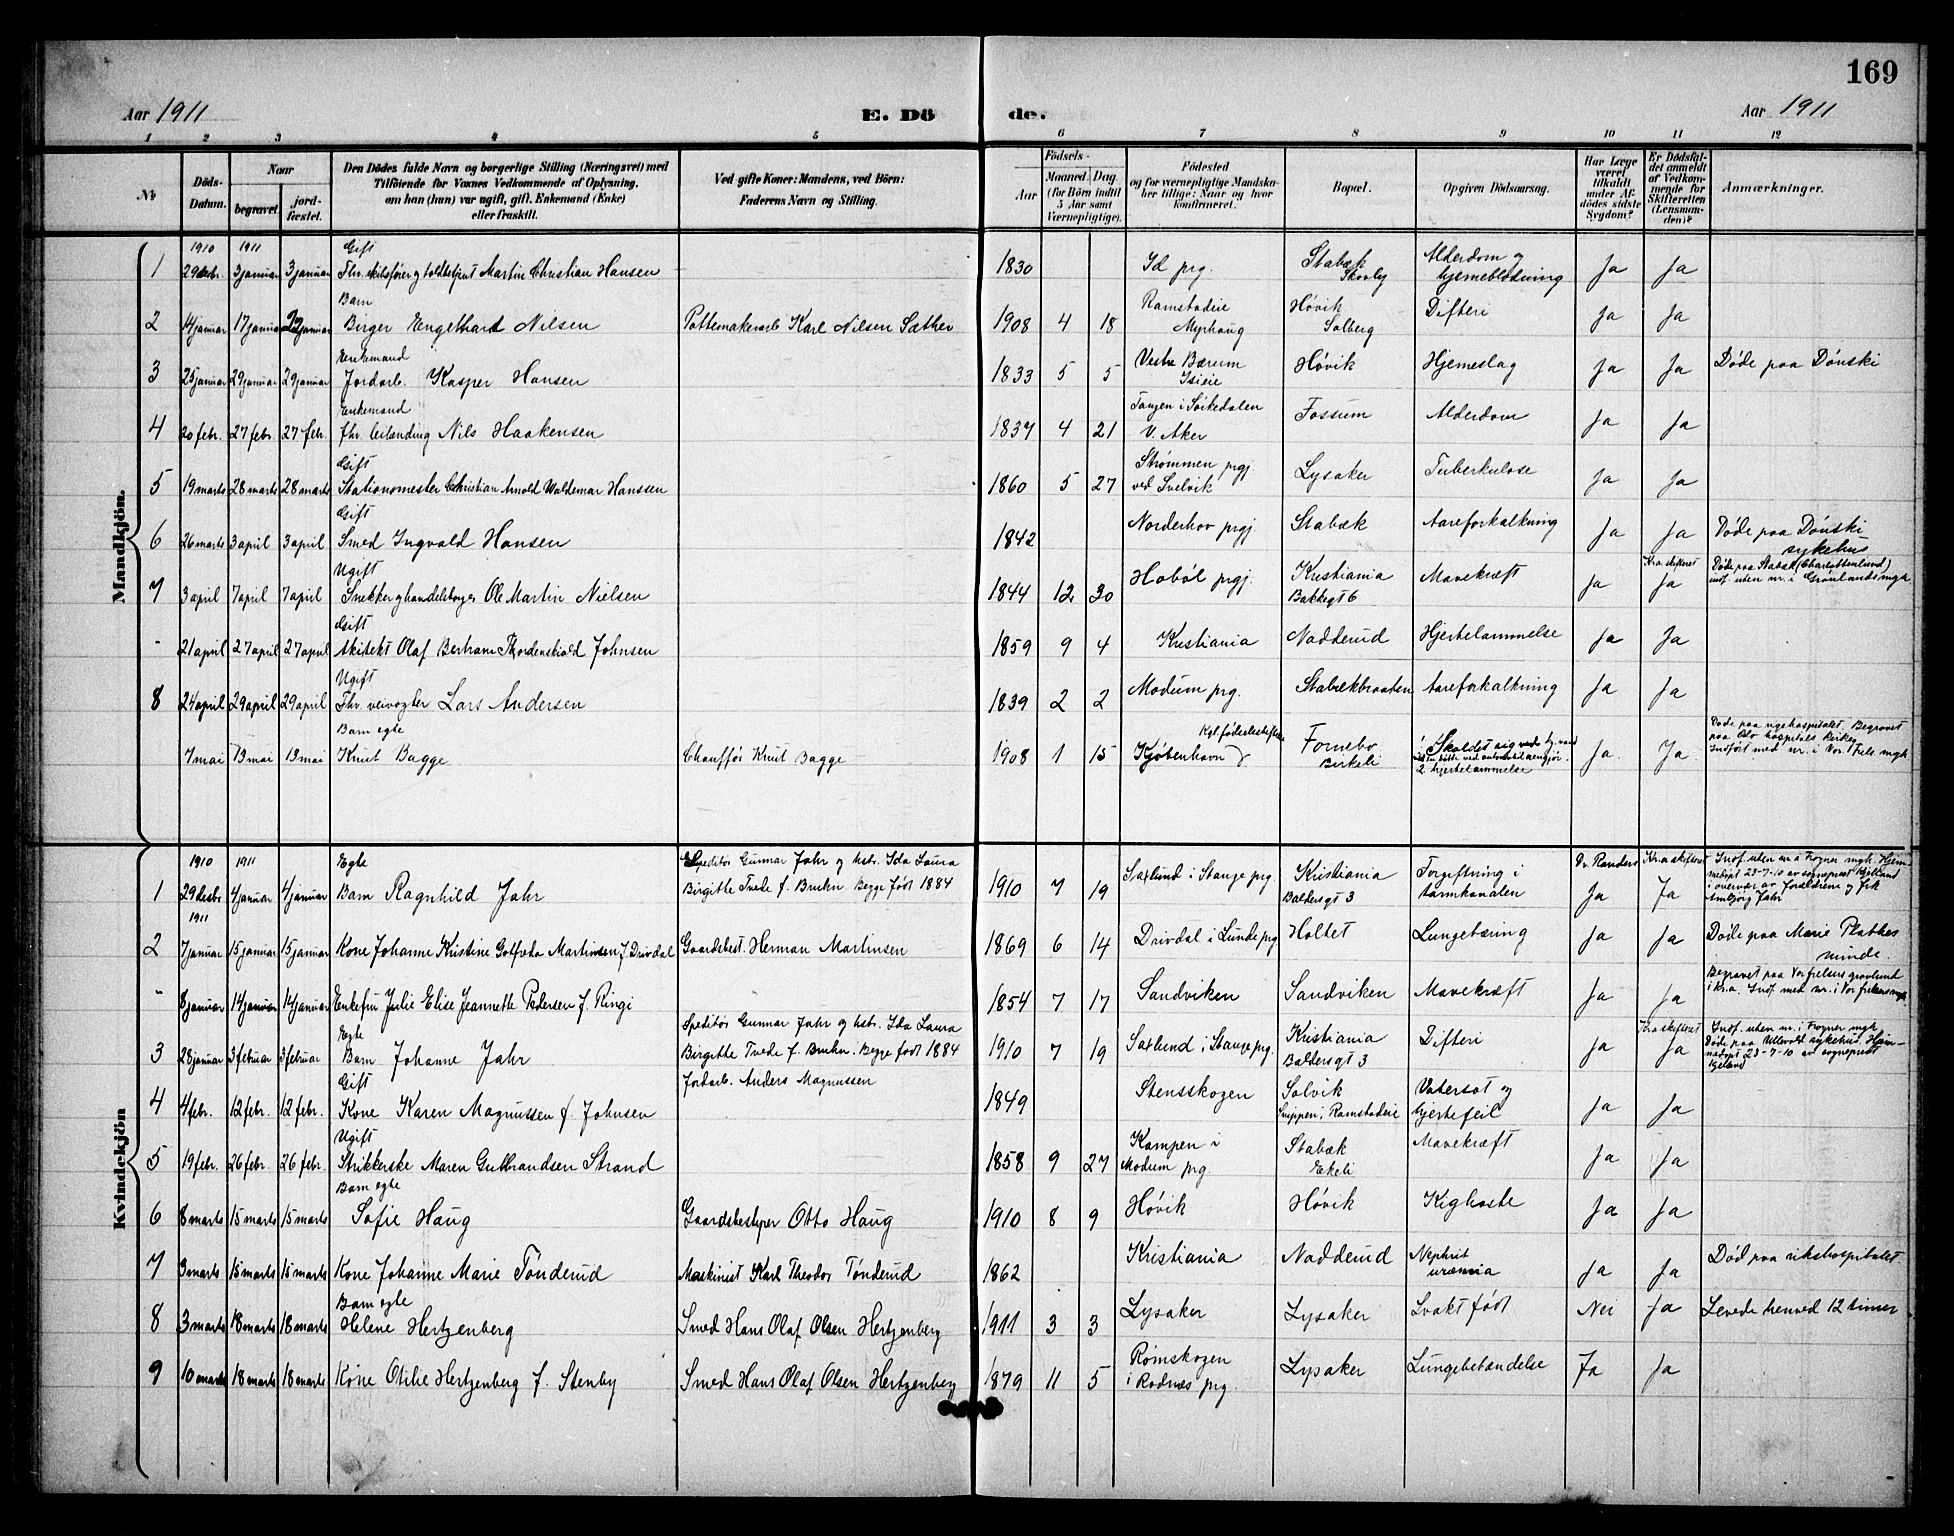 169
Aar 1911 E. Dö de. Aar 1911
1 2 3 4 5 6 7 8 9 10 11 12
No
Döds-Datum.
Naar
begravet.
jord-fæstet.
Den Dödes fulde Navn og borgerlige Stilling (Næringsvei) med
Tilföiende for Voxnes Vedkommende af Oplysning,
om han (hun) var ugift, gift, Enkemand (Enke)
eller fraskilt.
Ved gifte Koner: Mandens, ved Börn:
Faderens Navn og Stilling.
Födsels-
Aar
Maaned. Dag.
(for Börn indtil
5 Aar samt
Værnepligtige).
Födested
og for værnepligtige Mandskaber tillige: Naar og hvor
konfirmeret.
Bopæl.
Opgiven Dödsaarsag.
Har Læge
været
tilkaldt
under Afdödes sidste
Sygdom?
Er Dödsfaldet anmeldt
af Vedkommende for
Skifteretten
(Lensmanden)?
Anmærkninger.
Mandkjön.
1910 1911 Gift
1 29 desbr. 3 januar 3 januar Fhr. skibsfører og toldbetjent Martin Christian Hansen 1830 Id prg. Stabæk Alderdom og hjerneblødning Ja Ja
Barn
2 14 januar 17 januar 22 januar Birger Engelhard Nilsen Pottemakerarb. Karl Nilsen Sæther 1908 4 18 Ramstadeie Myrhaug Høvik Solberg Difteri Ja Ja
Enkemand
3 25 januar 29 januar 29 januar Jordarb. Kasper Hansen 1833 5 5 Vestre Bærum Høvik Hjerneslag Ja Ja Døde paa Dønski
Enkemand
4 20 febr. 27 febr. 27 febr. fhr. leilænding Nils Haakensen 1837 4 21 Tangen i Sørkedalen V. Aker Fossum Alderdom Ja Ja
Gift
5 19 marts 28 marts 28 marts Stationsmester Christian Arnold Waldemar Hanssen 1860 5 27 Strømmen prgj. ved Svelvik Lysaker Tuberkulose Ja Ja
Gift
6 26 marts 3 april 3 april Smed Ingvald Hansen 1842 Norderhov prgj. Stabæk Aareforkalkning Ja Ja Døde paa Dønski sykehus
Ugift
7 3 april 7 april 7 april Snekker og handelsborger Ole Martin Nielsen 1844 12 30 Hobøl prgj. Kristiania Bakkegt 6 Mavekræft Ja Kr.a skifteret Ja Døde paa Stabæk (Charlottenlund) indf. uten nr. i Grønlands mgh
Gift
" 21 april 27 april 27 april Arkitekt Olaf Bertram Thordenskiold Johnsen 1859 9 4 Kristiania Nadderud Hjertelammelse Ja Ja
Ugift
8 24 april 29 april 29 april Fhr. veivogter Lars Andersen 1839 2 2 Modum prg. Stabækbraaten Aareforkalkning Ja Ja
Barn egte
7 mai 13 mai 13 mai Knut Bagge Chauffør Knut Bagge 1908 1 15 Kgl. fødselsstiftelse Kjøbenhavn Fornebo Birkeli 1 Skoldet sig ved 2 hjertelammelse Ja. Ja. Døde paa rigshospitalet. Begravet paa Oslo hospitals kirkeg. Indført med nr. i Vor Frels. mgh
Kvindekjön
1910 1911 Egte
1 29 desbr. 4 januar 4 januar Barn Ragnhild Jahr Speditør Gunnar Jahr og hstr. Ida Laura Birgitte Tvede f. Bruhn. Begge født 1884 1910 7 19 Saxlund i Stange prg. Kristiania Baldersgt 3 Forgiftning i tarmkanalen Dr. Randers Ja Kr.a skifteret Ja Indf. uten nr. i Frogner mgh. Hjemmedøpt 23-7-10 av sogneprest Kjelland i overvær av forældrene og frk Ambjørg Jahr
1911
2 7 januar 15 januar 15 januar Kone Johanne Kristine Gotfreda Martinsen f. Drivdal Gaardsbest. Herman Martinsen 1869 6 14 Drivdal i Lunde prg Holtet Lungetæring Ja Ja Døde paa Marie Plathes minde.
" 8 januar 14 januar 14 januar Enkefru Julie Elise Jeannette Pedersen f. Ringi 1854 7 17 Sandviken Sandviken Mavekræft Ja Ja Begravet paa Vor frelsers gravlund i Kr.a. Indf. med nr. i Vor frelsers mgh
Egte
3 28 januar 3 februar 3 februar Barn Johanne Jahr Speditør Gunnar Jahr og hstr. Ida Laura Birgitte Tvede f. Bruhn. Begge født 1884 1910 7 19 Saxlund i Stange prg. Kristiania Baldersgt 3 Difteri Ja Kr.a skifteret Ja Indf. uten nr. i Frogner mgh. Døde paa Ullevold sykehus. Hjemmedøpt 23-7-10 av sogneprest Kjeland
Gift
4 4 febr. 12 febr. 12 febr. Kone Karen Magnussen f. Johnsen Jordarb. Anders Magnussen 1849 Stensskogen Solvik Snippen i Ramstadeie Vatersot og hjertefeil Ja Ja
Ugift
5 19 febr. 26 febr. 26 febr. Strikkerske Maren Gulbrandsen Strand 1858 9 27 Kampen i Modum prg. Stabæk Ekeli Mavekræft Ja Ja
Barn egte
6 8 marts 15 marts 15 marts Sofie Haug Gaardsbestyrer Otto Haug 1910 8 9 Høvik Høvik Kighoste Ja Ja
7 3 marts 15 marts 15 marts Kone Johanne Marie Tønderud Maskinist Karl Theodor Tønderud 1862 Kristiania Nadderud Nephrit uræmia Ja Ja Død paa rikshospitalet.
Barn egte
8 3 marts 18 marts 18 marts Helene Hertzenberg Smed Hans Olaf Olsen Hertzenberg 1911 3 3 Lysaker Lysaker Svakt født Nei Ja Levede henved 12 timer
9 10 marts 18 marts 18 marts Kone Otilie Hertzenberg f. Stenby Smed Hans Olaf Olsen Hertzenberg 1879 11 5 Rømskogen i Rødnæs prg. Lysaker Lungebetændelse Ja Ja